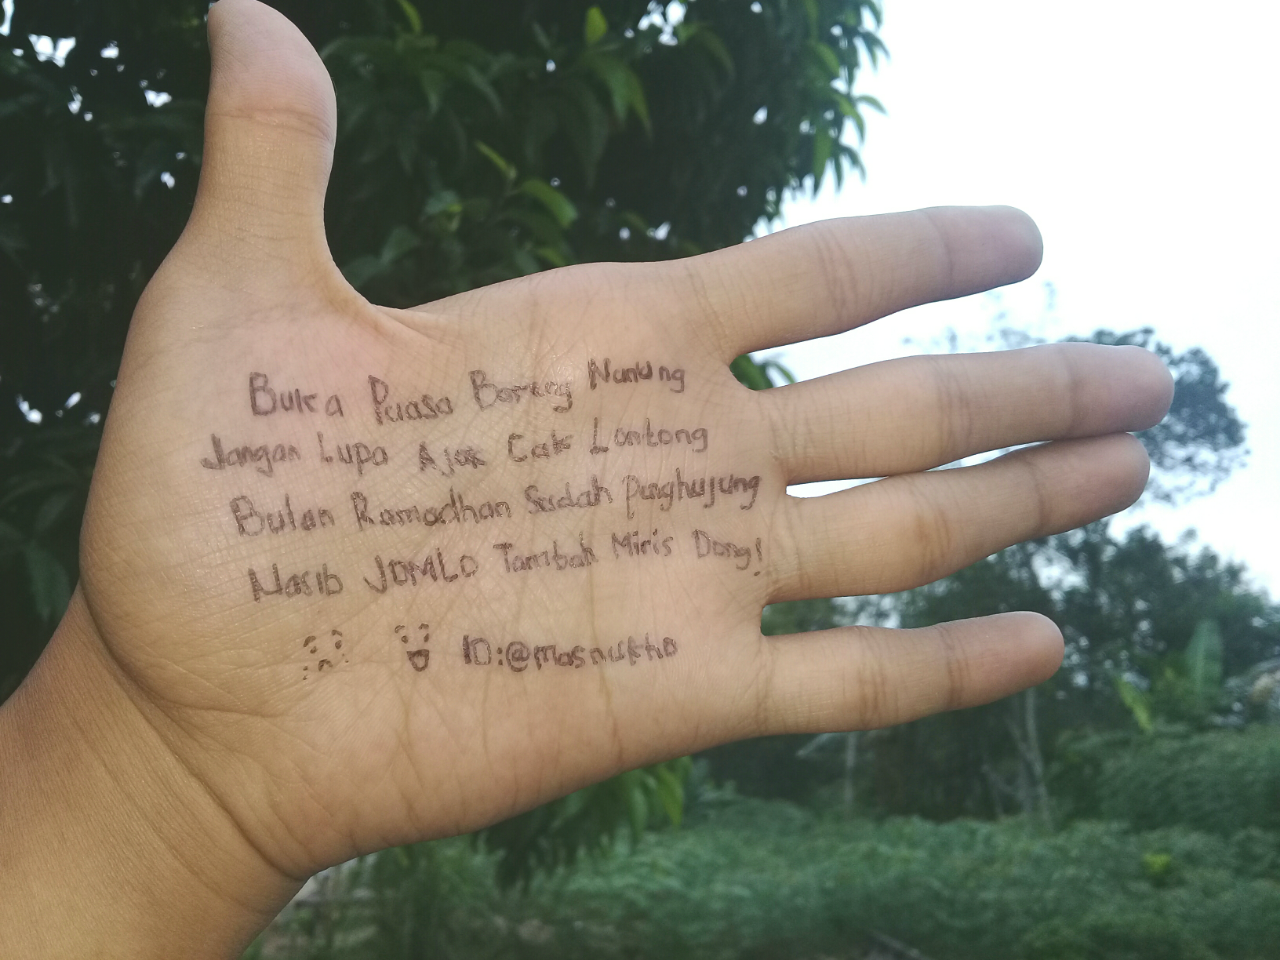 Buka Puasa Bareng Nunung
Jangan Lupa Ajak Cak Lontong
Bulan Ramadhan Sudah Punghujung
Nasib JOMLO Tambah Miris Dong!
ID:@masnukho